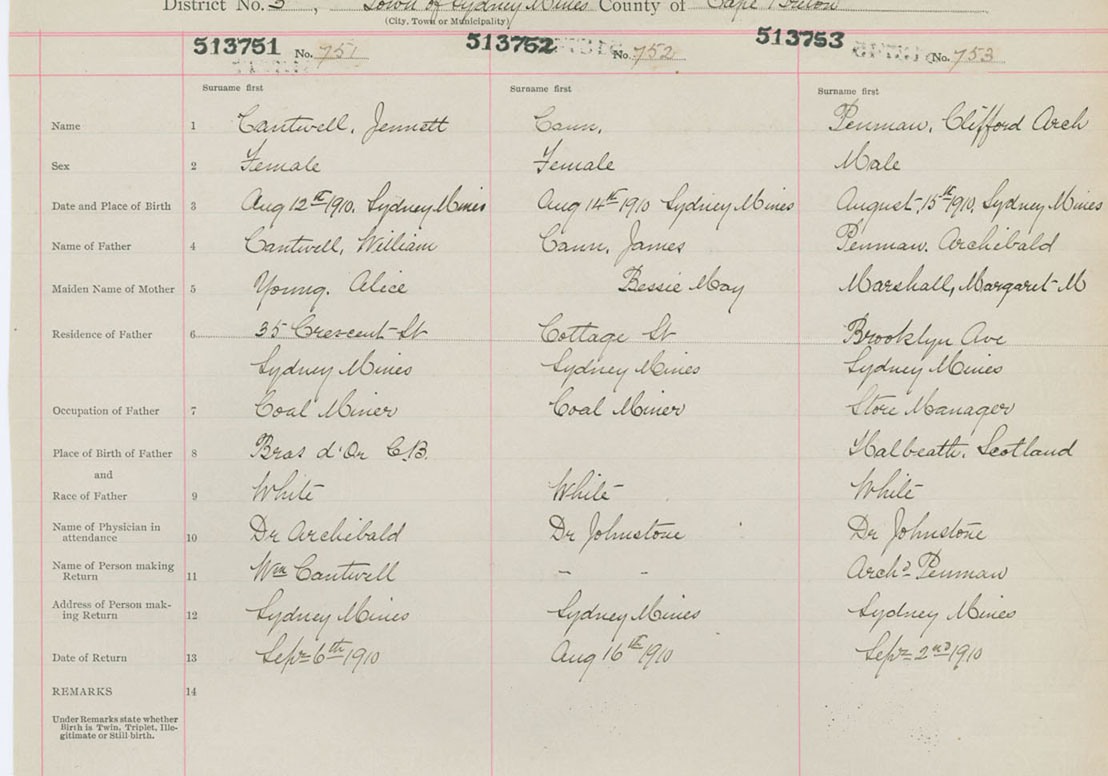 District No. 3, Town of Sydney Mines County of Cape Breton
(City, Town or Municipality)
513751 No. 751 513752 No. 752 513753 No. 753
Surname first Surname first Surname first
Name 1 Cantwell, Jennett Cann, Penman, Clifford Arch
Sex 2 Female Female Male
Date and Place of Birth 3 Aug 12th 1910. Sydney Mines Aug 14th 1910 Sydney Mines August, 15th 1910, Sydney Mines
Name of Father 4 Cantwell, William Cann, James Penman. Archibald
Maiden Name of Mother 5 Young. Alice Bessie May Marshall, Margaret M
Residence of Father 6 35 Crescent St Cottage St Brooklyn Ave
Sydney Mines Sydney Mines Sydney Mines
Occupation of Father 7 Coal Miner Coal Miner Store Manager
Place of Birth of Father 8 Bras d'Or C.B. Halbeath, Scotland
and
Race of Father 9 White White White
Name of Physician in
attendance 10 Dr Archibald Dr Johnstone Dr Johnstone
Name of Person making
Return 11 Wm Cantwell - - Archd Penman
Address of Person mak-
ing Return 12 Sydney Mines Sydney Mines Sydney Mines
Date of Return 13 Sept 6th 1910 Aug 16th 1910 Sept 2nd 1910
REMARKS 14
Under Remarks state whether
Birth is Twin, Triplet, Ille-
gitimate or Still birth.